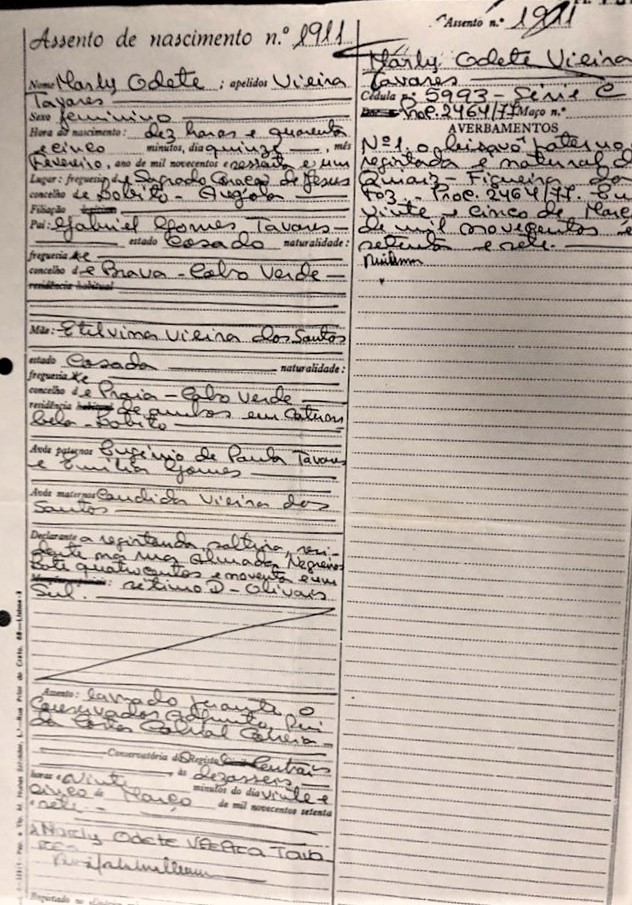 Assento de nascimento n.º 1911
Nome Marly Odete ; apelidos Vieira
Tavares
Sexo feminino
Hora do nascimento: dez horas e quarenta
e cinco minutos, dia quinze, mês
Fevereiro, ano de mil novecentos e sessenta e um
Lugar: freguesia de Sagrado Coração de Jesus
concelho de Lobito - Angola
Filiação
Pai: Gabriel Gomes Tavares
estado casado naturalidade:
freguesia de
concelho de Brava - Cabo Verde
residência habitual
Mãe: Etelvina Vieira dos Santos
estado casada naturalidade:
freguesia de
concelho de Praia - Cabo Verde
residência habitual de ambos em Catum
bela - Lobito
Avós paternos Eugénio de Paula Tavares
e Emília Gomes
Avós maternos Candida Vieira dos
Santos
Declarante a registanda solteira, resi-
dente na rua Almada Negreiros
lote quatrocentos e noventa e um
: sétimo D - Olivais
Sul.
Assento: lavrado perante o
Conservador adjunto, Rui
da Costa Cabral Correia
Conservatória dos Registos Centrais
às dezasseis
horas e vinte minutos do dia vinte e
cinco de Março de mil novecentos setenta
e sete.
Marly Odete Vieira Tava
res
Assento n.º 1911
Marly Odete Vieira
Tavares
Cédula n.º 5993 - Série C
Proc. 2464/77 Maço n.º
AVERBAMENTOS
Nº 1. o bisavô paterno
registanda é natural de
Quiaios - Figueira da
Foz - Proc. 2464/77. Em
vinte e cinco de Março
de mil novecentos e
setenta e sete.